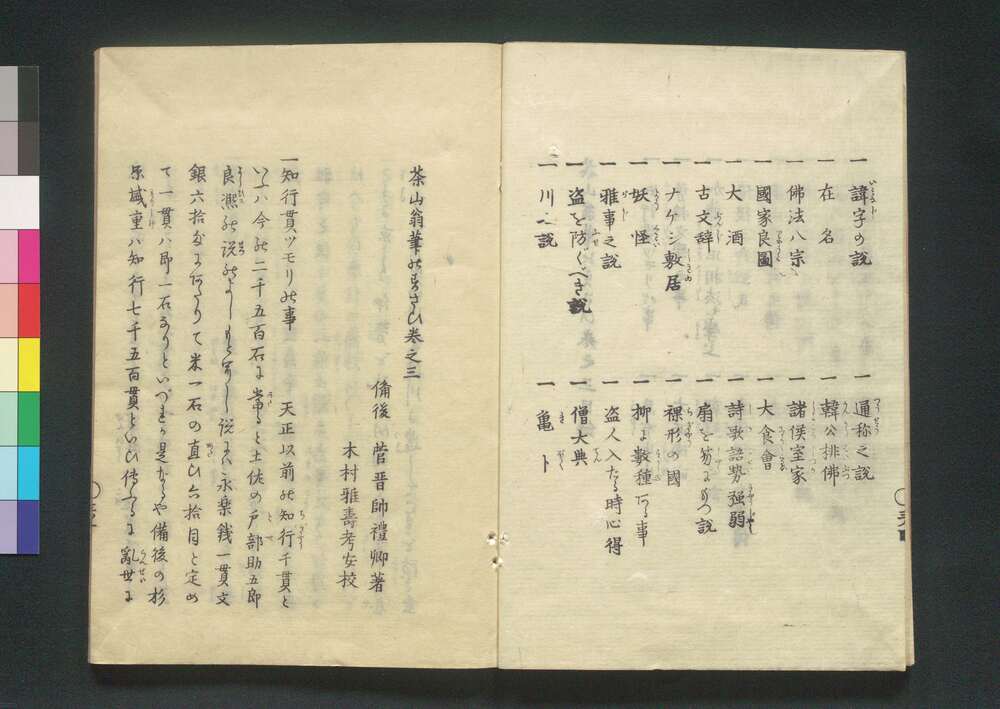 一 諱字の説
一 在名
一 佛法八宗
一 國家良圖
一 大酒
一 古文辞
一 ナゲシ敷居
一 妖怪
一 雅事之説
一 盗を防ぐべき説
一 川之説
一 通称之説
一 韓公排佛
一 諸侯室家
一 大食會
一 詩歌語勢強弱
一 扇を笏に
一 裸形の國
一 柳に數種アル事
一 盗人入たる時心得
一 僧大典
一 亀卜
茶山翁筆のすさひ巻之三
備後 菅晋帥禮卿著
木村雅壽考安校
一知行貫ツモリの事 天正以前の知行千貫と
いふハ今の二千五百石に當ると土佐の戸部助五郎
良凞の説のよし
説に永楽銭一貫文
銀六拾
米一石の直ひ六拾目と定め
て一貫ハ即一石なりといづれか是ならや備後の杉
原盛重ハ知行七千五百貫といひ傳ふるに亂世に